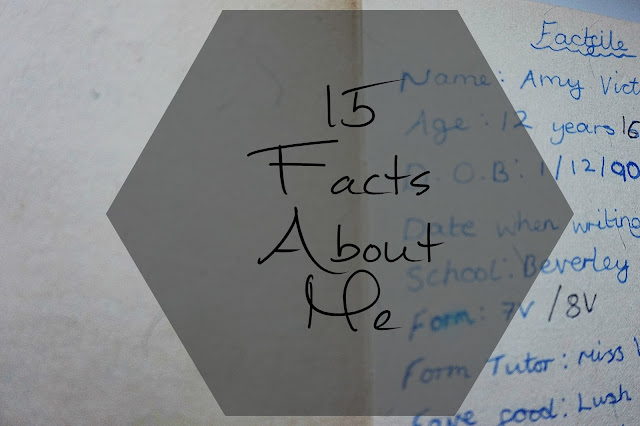 15
Facts
About
Me
Factfile
Name: Amy Vict
Age: 12 years
D.O.B: 1/12/90
Date when writing
School: Beverley
Form: 7V /8V
Form Tutor: Miss
Fave food: Lush